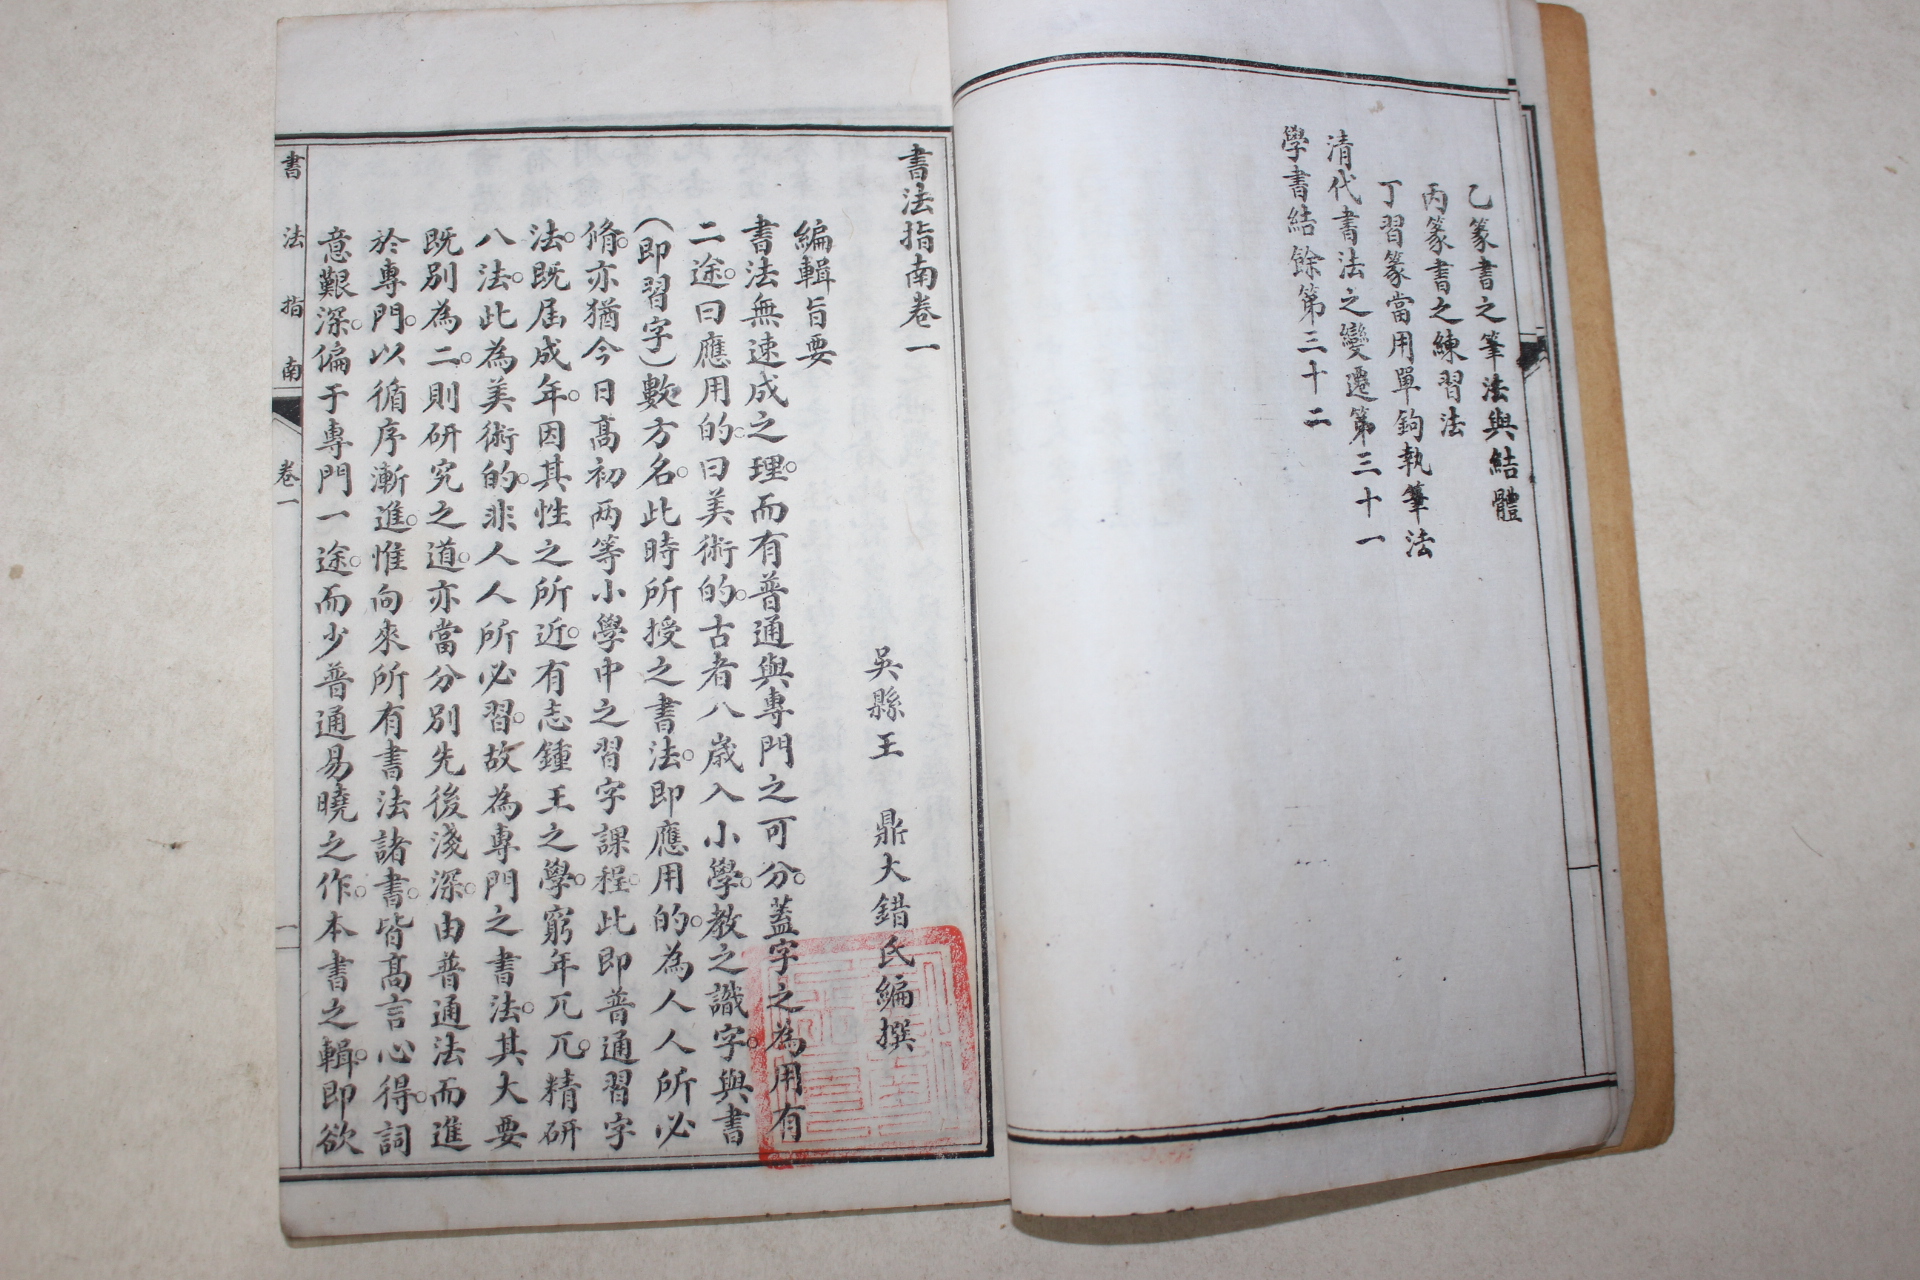 乙篆書之筆法與結體
丙篆書之練習法
丁習篆當用單鉤執筆法
清代書法之變遷第三十一
學書結餘第三十二
書法指南卷一
吳縣王　鼎大錯氏編撰
編輯旨要
書法無速成之理。而有普通與專門之可分。蓋字之為用有
二途。曰應用的。曰美術的。古者八歲入小學。教之識字。與書
（即習字）數方名。此時所授之書法。即應用的。為人人所必
脩。亦猶今日高初兩等小學中之習字課程。此即普通習字
法。既屆成年。因其性之所近。有志鍾王之學。窮年兀兀。精研
八法。此為美術的。非人人所必習。故為專門之書法。其大要
既別為二。則研究之道。亦當分別先後淺深。由普通法而進
於專門。以循序漸進。惟向來所有書法諸書。皆高言心得。詞
意艱深。偏于專門一途。而少普通易曉之作。本書之輯。即欲
書法指南
卷一
一